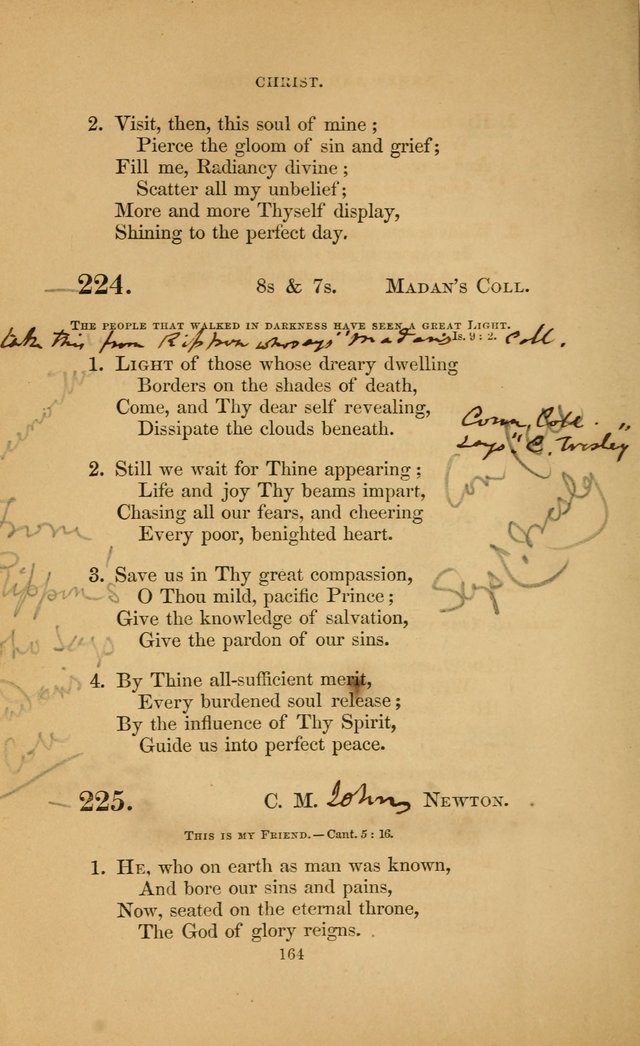 CHRIST.
2. Visit, then, this soul of mine ;
Pierce the gloom of sin and grief;
Fill me, Radiancy divine ;
Scatter all my unbelief;
More and more Thyself display,
Shining to the perfect day.
224. 8s & 7s. MADAN'S COLL.
THE PEOPLE THAT WALKED IN DARKNESS HAVE SEEN A GREAT LIGHT.
Is. 9 : 2.
take this from Rippon who says "Madan's Coll.
1. LIGHT of those whose dreary dwelling
Borders on the shades of death,
Come, and Thy dear self revealing,
Dissipate the clouds beneath.
Coll.
says "C. Wesley"
2. Still we wait for Thine appearing ;
Life and joy Thy beams impart,
Chasing all our fears, and cheering
Every poor, benighted heart.
from
Rippon's
who says
Madan's
Coll
3. Save us in Thy great compassion,
O Thou mild, pacific Prince ;
Give the knowledge of salvation,
Give the pardon of our sins.
4. By Thine all-sufficient merit,
Every burdened soul release ;
By the influence of Thy Spirit,
Guide us into perfect peace.
225. C. M. John NEWTON.
THIS IS MY FRIEND.—Cant. 5 : 16.
1. HE, who on earth as man was known,
And bore our sins and pains,
Now, seated on the eternal throne,
The God of glory reigns.
164